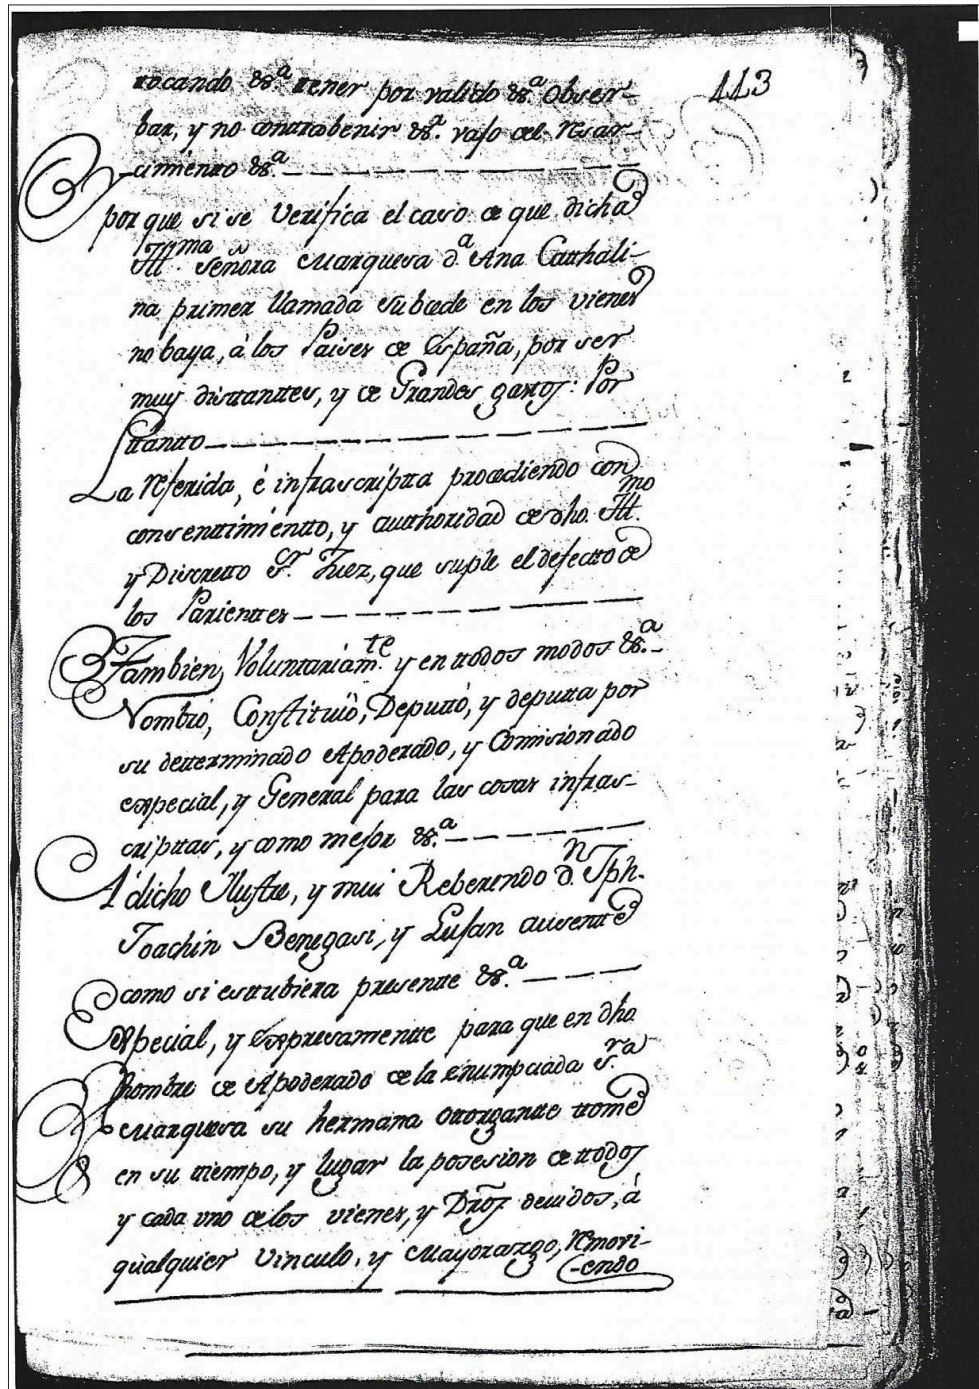 113
tocando &.ª tener por valido &.ª obser-
bar, y no contrabenir &.ª vaso del resar-
cimiento &.ª
Y por que si se Verifica el caso de que dicha
Ill.ma Señora Marquesa d.ª Ana Cathali-
na primer llamada subcede en los vienes
no baya, à los Paises de España, por ser
muy distanttes, y de Grandes gastos: Por
ttántto
La referida, é infrascriptta procediendo con
consenttimientto, y authoridad de dho. Ill.mo
y Discretto S.r Juez, que suple el defectto de
los Parienttes
Tambien, Voluntariam.te y en ttodos modos &.ª
Nombró, Constituiò, Deputtó, y deputta por
su detterminado Apoderado, y Comisionado
especial, y General para las cosas infras-
cripttas, y como mejor &.ª
A dicho Ilustre, y mui Reberendo d.n Jph.
Joachin Benegasi, y Lujan ausentte
como si esttubiera presentte &.ª
Especial, y expresamentte para que en dho
nombre de Apoderado de la enumpciada S.ra
Marquesa su hermana otorgantte ttome
en su tiempo, y lugar la posesion de ttodos
y cada vno de los vienes, y Dr̃os devidos, à
qualquier Vinculo, y Mayorazgo, remori-
-endo